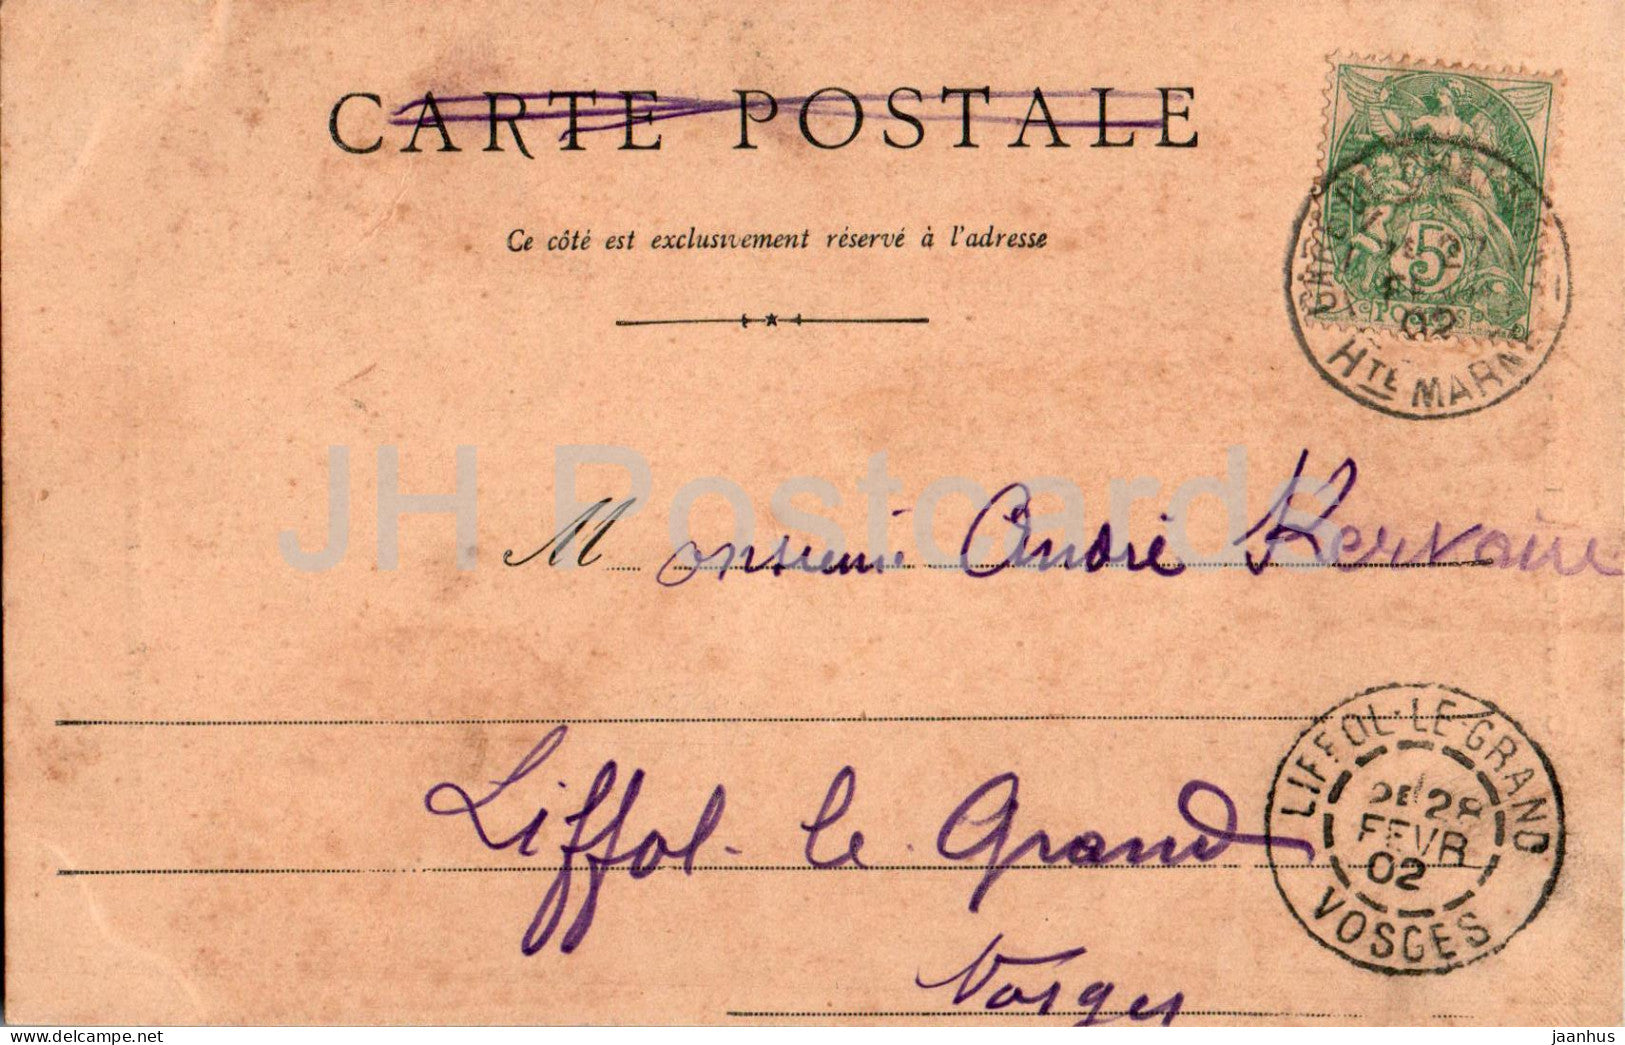 CARTE POSTALE
Ce côté est exclusivement réservé à l'adresse
5
POSTES
02
HTE MARNE
JH Postcards
Monsieur André Kervaire
Liffol-le-Grand
Vosges
LIFFOL-LE-GRAND
28
FEVR
02
VOSGES
www.delcampe.net
jaanhus